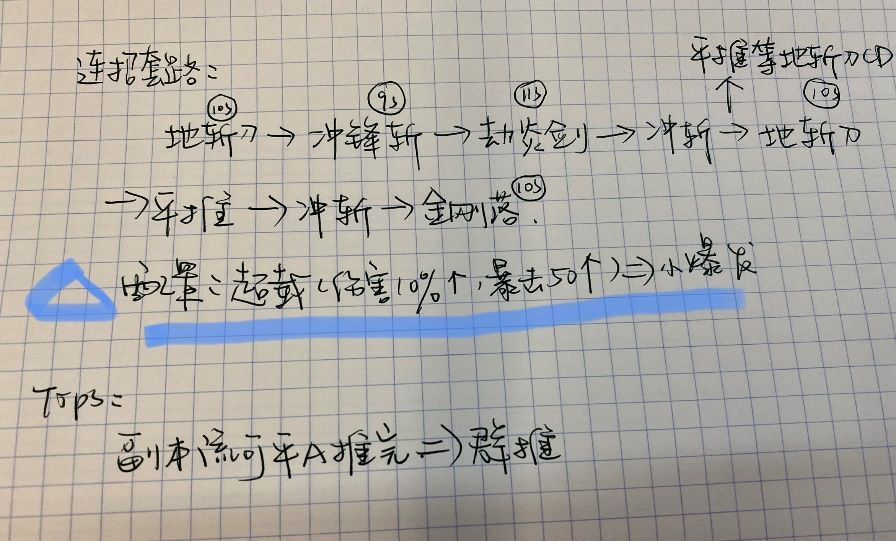 连招套路：
平推等地斩刀CD
10s 9s 11s 10s
地斩刀→冲锋斩→劫炎剑→冲斩→地斩刀
10s
→平推→冲斩→金刚落.
配置：超载（伤害10%个，暴击50个）⇒小爆发
Tops：
副本流可平A推完⇒群推